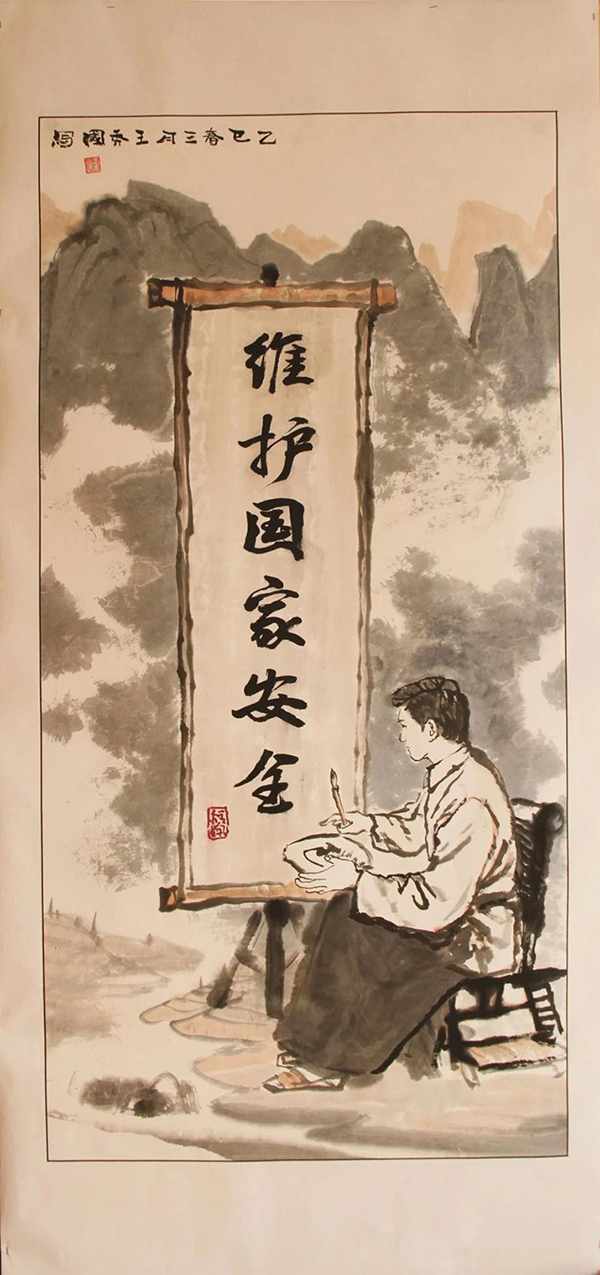 乙巳春三月王國寫
维护国家安全